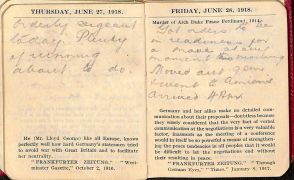 THURSDAY, JUNE 27, 1918.
Orderly sergeant
today. Plenty
of running
about to do.
He (Mr. Lloyd George) like all Europe, knows
perfectly well how hard Germany's statesmen tried
to avoid war with Great Britain and to facilitate
her neutrality.
"FRANKFURTER ZEITUNG." "West-
minster Gazette," October 2, 1916.
FRIDAY, JUNE 28, 1918.
Murder of Arch Duke Franz Ferdinand, 1914.
Got orders to be
in readiness for
a move at any
moment this morning
Moved out
went to Amiens
arrived 4 PM
Germany and her allies make no detailed com-
munication about their proposals—doubtless because
they wisely considered that the very fact of verbal
communication at the negotiations is a very valuable
factor, inasmuch as the sending of a conference
would in itself be so powerful a means of strengthen-
ing the peace tendencies in all peoples that it would
be difficult to let the negotiations end without
their resulting in peace.
"FRANKFURTER ZEITUNG." "Through
German Eyes," "Times," January 3, 1917.